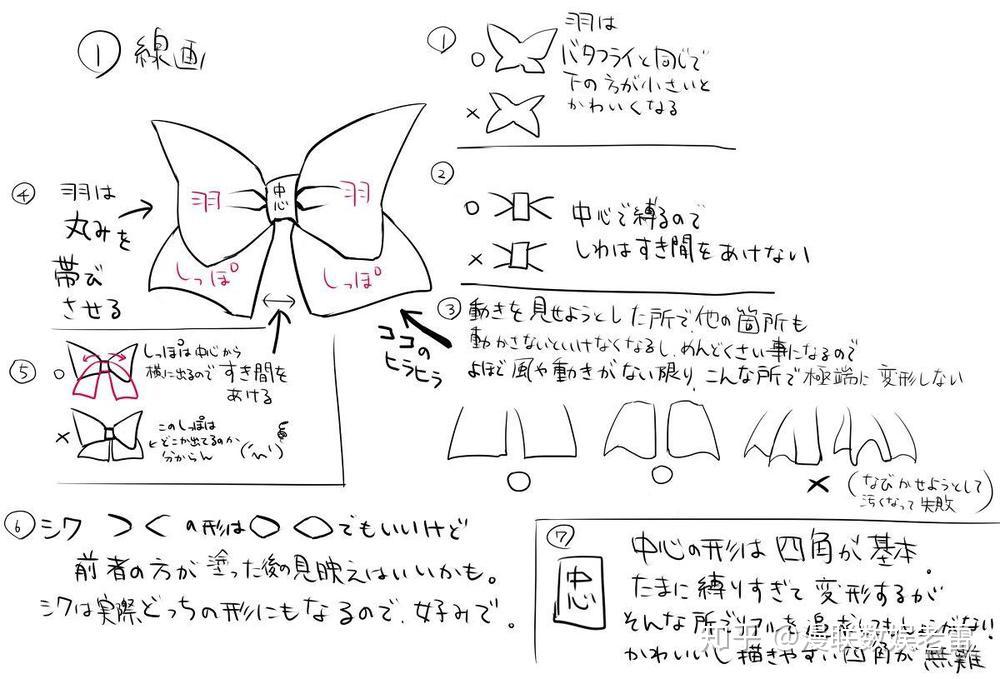 ① 線画
羽
中心
羽
しっぽ
しっぽ
①
○
羽は
バタフライと同じで
下の方が小さいと
かわいくなる
×
②
○
×
中心で縛るので
しわはすき間をあけない
③ 動きを見せようとした所で他の箇所も
動かさないといけなくなるし、めんどくさい事になるので
よほど風や動きがない限り、こんな所で極端に変形しない
ココの
ヒラヒラ
○
○
× (なびかせようとして
汚くなって失敗)
④ 羽は
丸みを
帯び
させる
⑤
○
しっぽは中心から
横に出るのですき間を
あける
×
このしっぽは
どこから出てるのか
分からん
⑥ シワ の形は でもいいけど
前者の方が塗った後の見映えはいいかも。
シワは実際どっちの形にもなるので、好みで。
⑦
中心
中心の形は四角が基本。
たまに縛りすぎて変形するが
そんな所でリアルを
かわいいし描きやすい四角が無難
知乎 @漫联数娱老雷